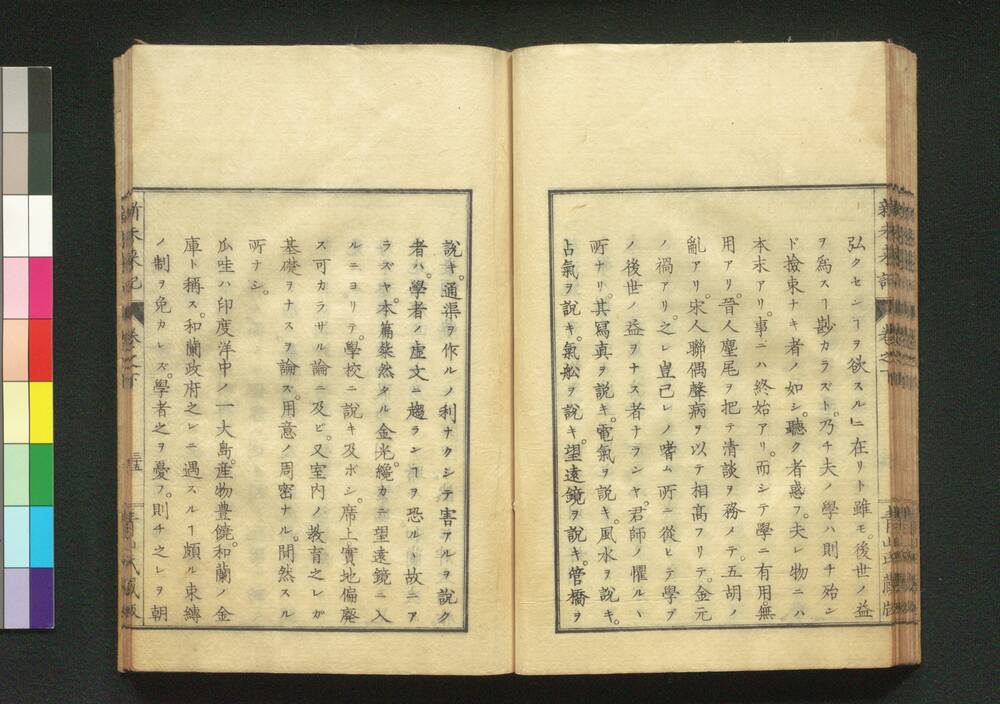 弘クセンヿヲ欲スルニ在リト雖モ。後世ノ益
ヲ爲スヿ尠カラズト。乃チ夫ノ學ハ則チ殆ン
ド撿束ナキ者ノ如シ。聽ク者惑フ。夫レ物ニハ
本末アリ。事ニハ終始アリ。而シテ學ニ有用。無
用アリ。晉人麈尾ヲ把テ清談ヲ務メテ。五胡ノ
亂アリ。宋人聯偶聲病ヲ以テ相高フリテ。金元
ノ禍アリ。之レ豈己レノ嗜ム所ニ從ヒテ學ブ
ノ後世ノ益ヲナス者ナランヤ。君師ノ懼ルヽ
所ナリ。其冩真ヲ說キ。電氣ヲ說キ。風水ヲ說キ。
占氣ヲ說キ。氣舩ヲ說キ。望遠鏡ヲ說キ。管橋ヲ
說キ。通渠ヲ作ルノ利ナクシテ害アルヲ說ク
者ハ。學者ノ虛文ニ趨ランヿヲ恐ルヽ故ニア
ラズヤ。本篇粲然タル金光纔カニ望遠鏡ニ入
ルニヨリテ。學校ニ說キ及ボシ。席上實地偏廢
ス可カラザル論ニ及ビ。又室内ノ教育之レガ
基礎ヲナスヲ論ズ。用意ノ周密ナル。間然スル
所ナシ。
瓜哇ハ印度洋中ノ一大島。産物豊饒。和蘭ノ金
庫ト稱ス。和蘭政府之レニ遇スルヿ頗ル束縛
ノ制ヲ免カレズ。學者之ヲ憂フ。則チ之レヲ朝
新未来記
卷之下